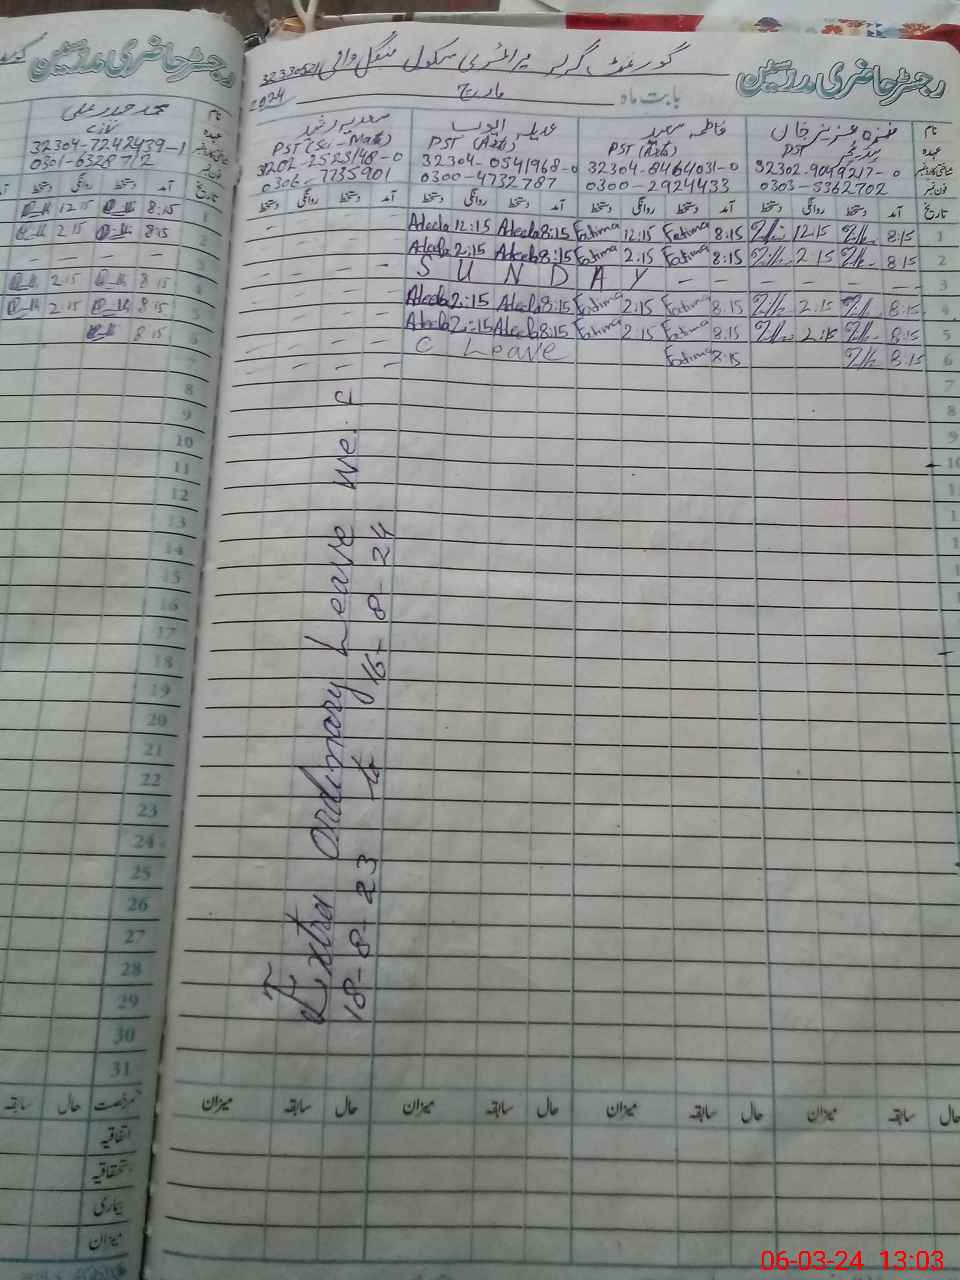 رجسٹر حاضری مدرسین
گورنمنٹ گرلز پرائمری سکول منگل والی 32330521
بابت ماہ مارچ 2024
نام
عہدہ
شناختی کارڈ نمبر
فون نمبر
فاطمہ سعید عدیلہ ایوب سعدیہ رشید
PST PST (Arts) PST (Arts) PST (Sci-Math)
32302-9049217-0 32304-8464031-0 32304-0541968-0 31202-2525148-0
0303-5362702 0300-2924433 0300-4732787 0306-7735901
تاریخ آمد دستخط روانگی دستخط آمد دستخط روانگی دستخط آمد دستخط روانگی دستخط آمد دستخط روانگی دستخط
1 8:15 12:15 8:15 Fatima 12:15 Fatima 8:15 Adeela 12:15 Adeela - - - -
2 8:15 2:15 8:15 Fatima 2:15 Fatima 8:15 Adeela 2:15 Adeela - - - -
3 - - - - - - SUNDAY - - - -
4 8:15 2:15 8:15 Fatima 2:15 Fatima 8:15 Adeela 2:15 Adeela - - - -
5 8:15 2:15 8:15 Fatima 2:15 Fatima 8:15 Adeela 2:15 Adeela - - - -
6 8:15 8:15 Fatima C Leave - - - -
7
8
9
10
Extra ordinary Leave w.e.f
18-8-23 to 16-8-24
حال سابقہ میزان حال سابقہ میزان حال سابقہ میزان حال سابقہ میزان
رجسٹر حاضری مدرسین
نام محمد حیدر علی
عہدہ
شناختی کارڈ نمبر 32304-7242439-1
فون نمبر 0301-6328712
تاریخ آمد دستخط روانگی دستخط
1 8:15 12:15
2 8:15 2:15
3 - - - -
4 8:15 2:15
5 8:15 2:15
6 8:15
7
8
9
10
11
12
13
14
15
16
17
18
19
20
21
22
23
24
25
26
27
28
29
30
31
حال سابقہ
اتفاقیہ
استحقاقیہ
بیماری
میزان
06-03-24 13:03